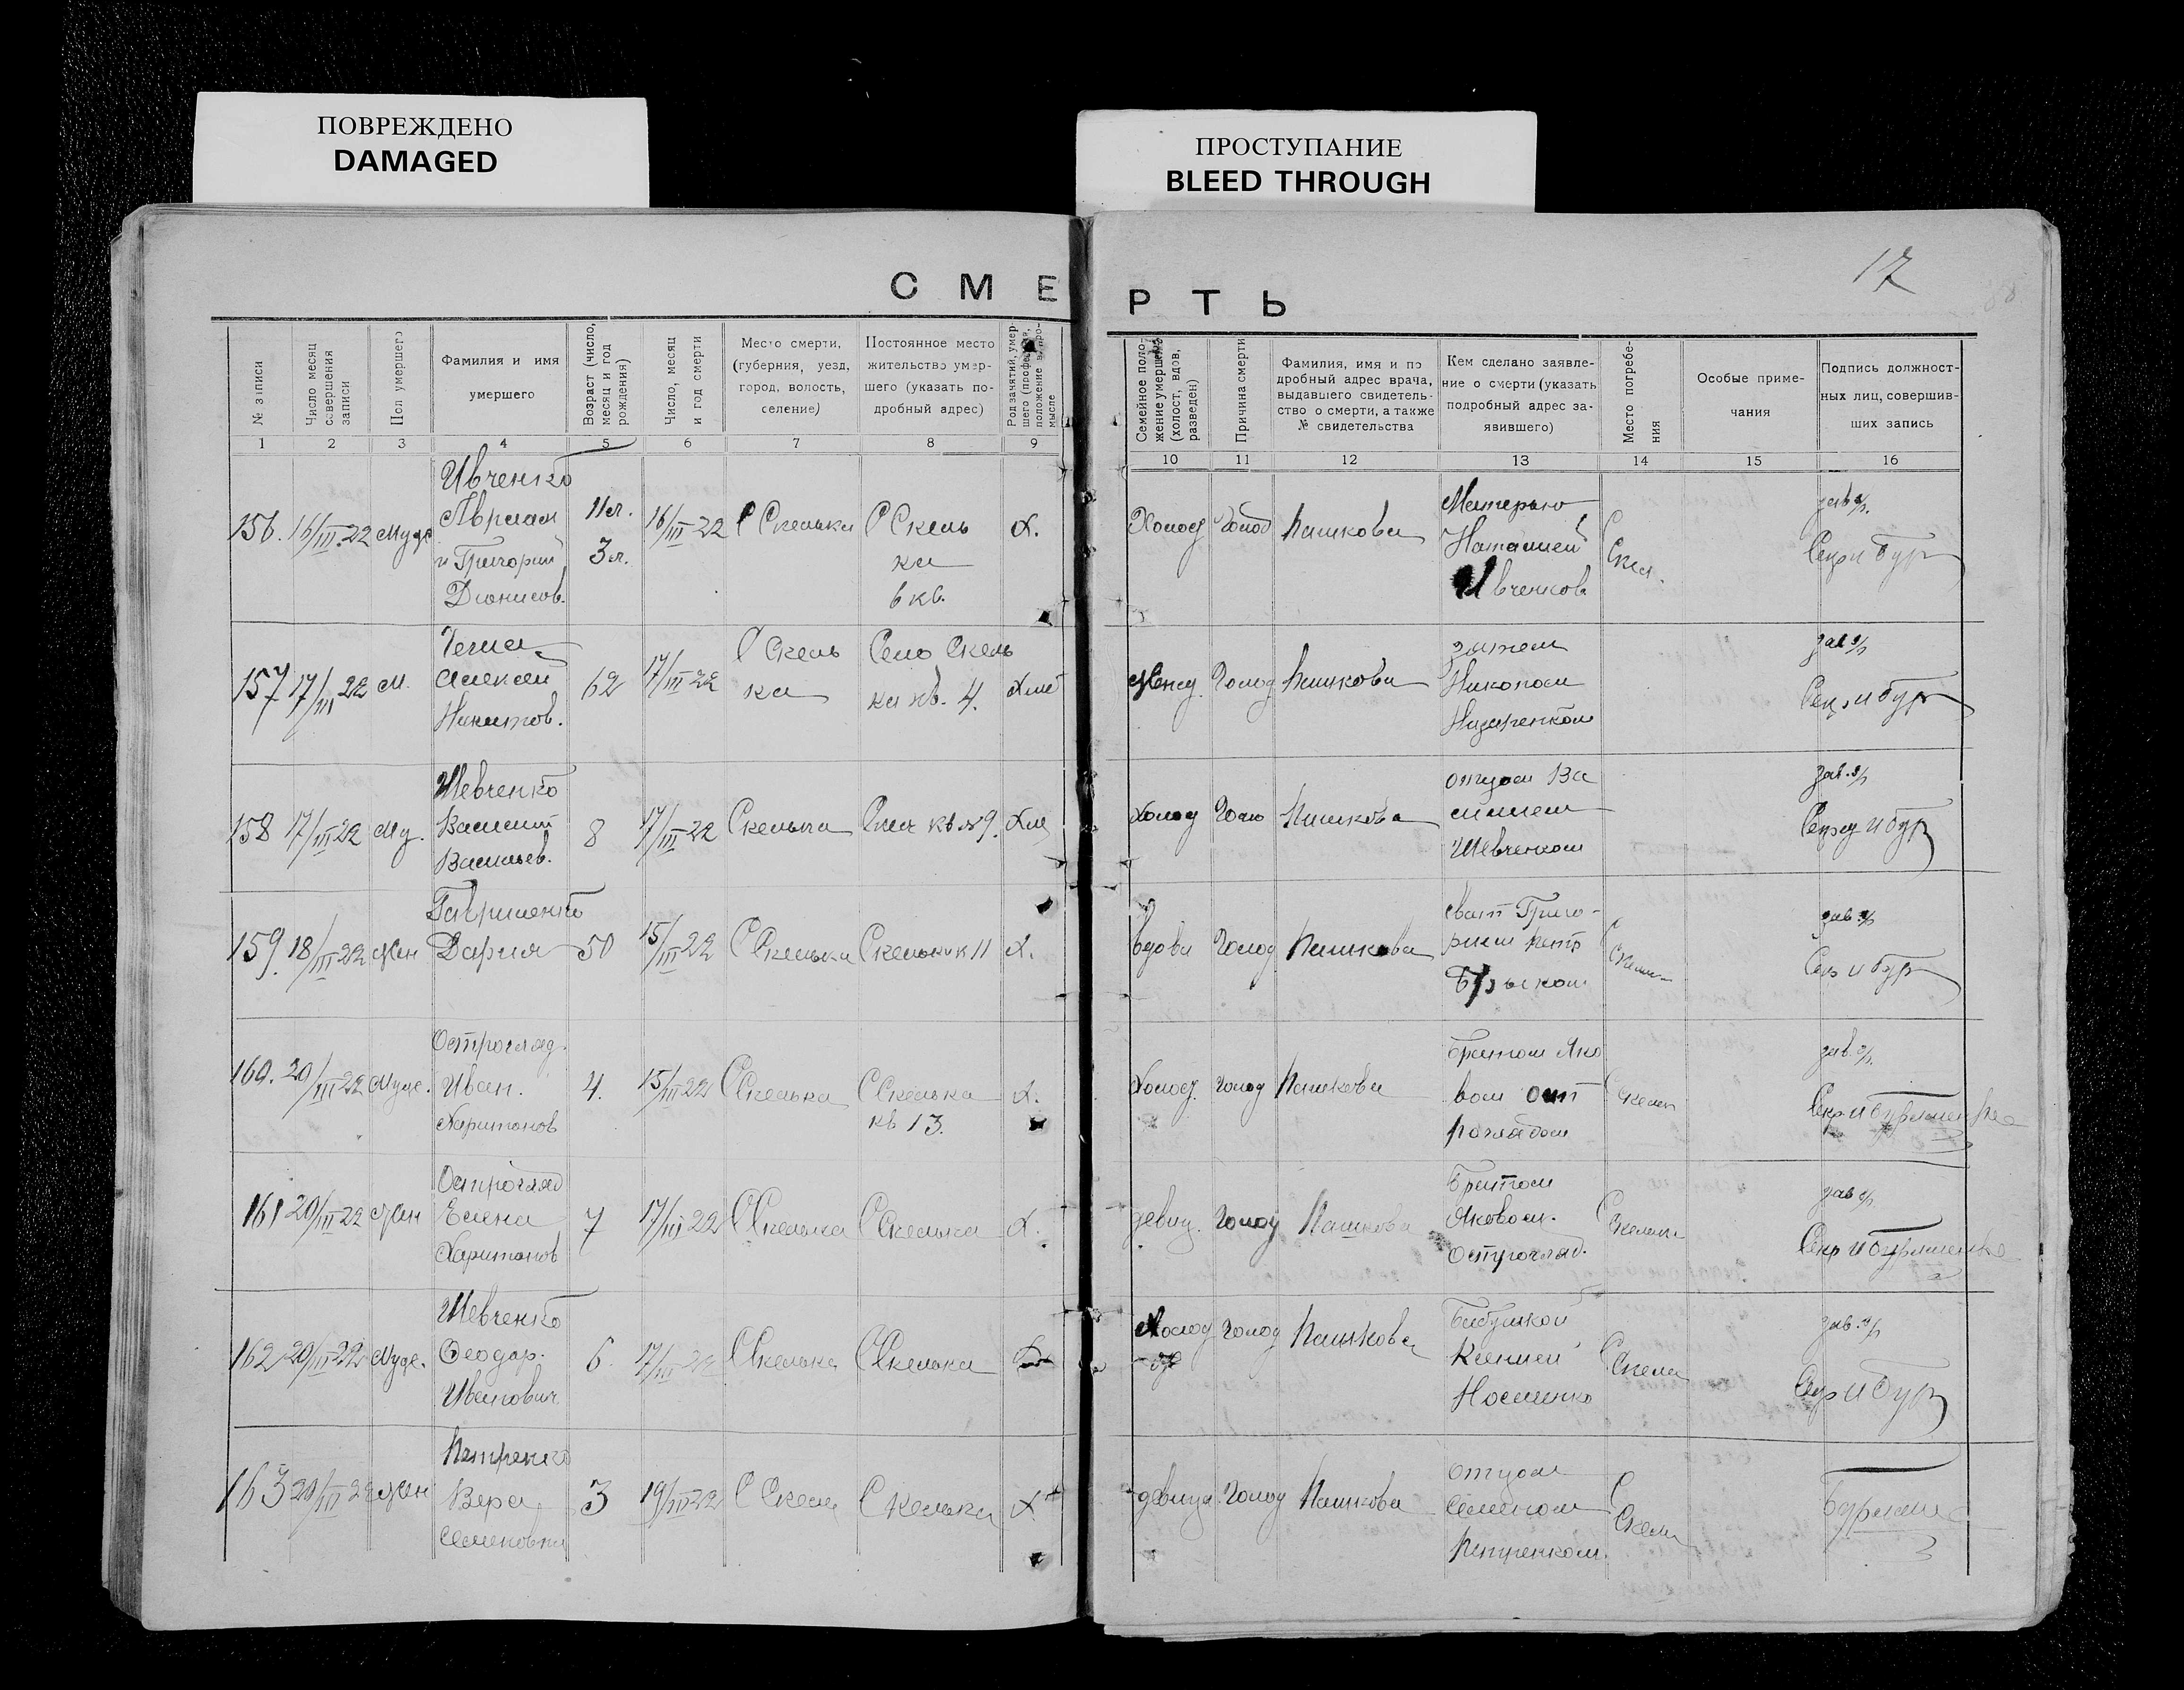 ПОВРЕЖДЕНО
DAMAGED
ПРОСТУПАНИЕ
BLEED THROUGH
17
С М Е Р Т Ь
№ записи
Число месяц совершения записи
Пол умершего
Фамилия и имя умершего
Возраст (число, месяц и год рождения)
Число, месяц и год смерти
Место смерти, (губерния, уезд, город, волость, селение)
Постоянное место жительство умершего (указать подробный адрес)
Род занятий, умершего
Семейное положение умершего (холост, вдов, разведен)
Причина смерти
Фамилия, имя и подробный адрес врача, выдавшего свидетельство о смерти, а также № свидетельства
Кем сделано заявление о смерти (указать подробный адрес заявившего)
Место погребения
Особые примечания
Подпись должностных лиц, совершивших запись
1 2 3 4 5 6 7 8 9 10 11 12 13 14 15 16
156. 16/III.22 Муж Ивченко Авраам и Григорий Дионисов. 11л. 3л. 16/III 22 С Скелька С Скелька 6 кв. Х. Холост Голод Пашкова Матерью Наталией Ивченков. С Скел. зав з/р.
157 17/III 22 М. Алексей Никитов. 62 17/III 22 С Скелька Село Скелька кв. 4. Голод Пашкова зятем Назаренком зав з/р
158 17/III 22 Му. Шевченко Василий Васильев. 8 17/III 22 Скелька кв №9. Холост Пашкова отцом Василием Шевченком зав. з/р
159. 18/III 22 Жен Гавриленко Дария 50 15/III 22 С Скелька Скелька к 11 Х. вдова Голод Пашкова сват Григорием зав з/р
160. 20/III 22 Муж. Острогляд. Иван. Харитонов 4. 15/III 22 С Скелька С Скелька кв 13. Х. Холост. Голод Пашкова Братом Яковом Остроглядом С Скельк зав. з/р.
161 20/III 22 Жен Острогляд Елена Харитонов 7 17/III 22 С Скелька С Скелька Х. девиц. Голод Пашкова Братом Яковом. Острогляд. С Скелька зав з/р.
162 20/III 22 Муж. Шевченко Феодор. Иванович 6. 17/III 22 С Скелька С Скелька Холост Голод Пашкова Бабушкой Ксенией Носенко С Скела зав. з/р
163 20/III 22 Жен Петренко Вера Семеновна 3 19/III 22 С Скел С Скелька Х. девица Голод Пашкова отцом Семеном Петренком. С Скель